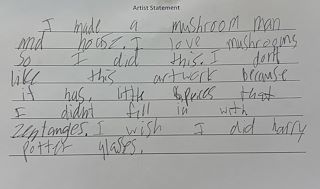 Artist Statement
I made a mushroom man
and house. I love mushrooms
so I did this. I dont
like this artwork because
it has little that
I didnt fill in with
zentangles. I wish I did harry
potter glases.